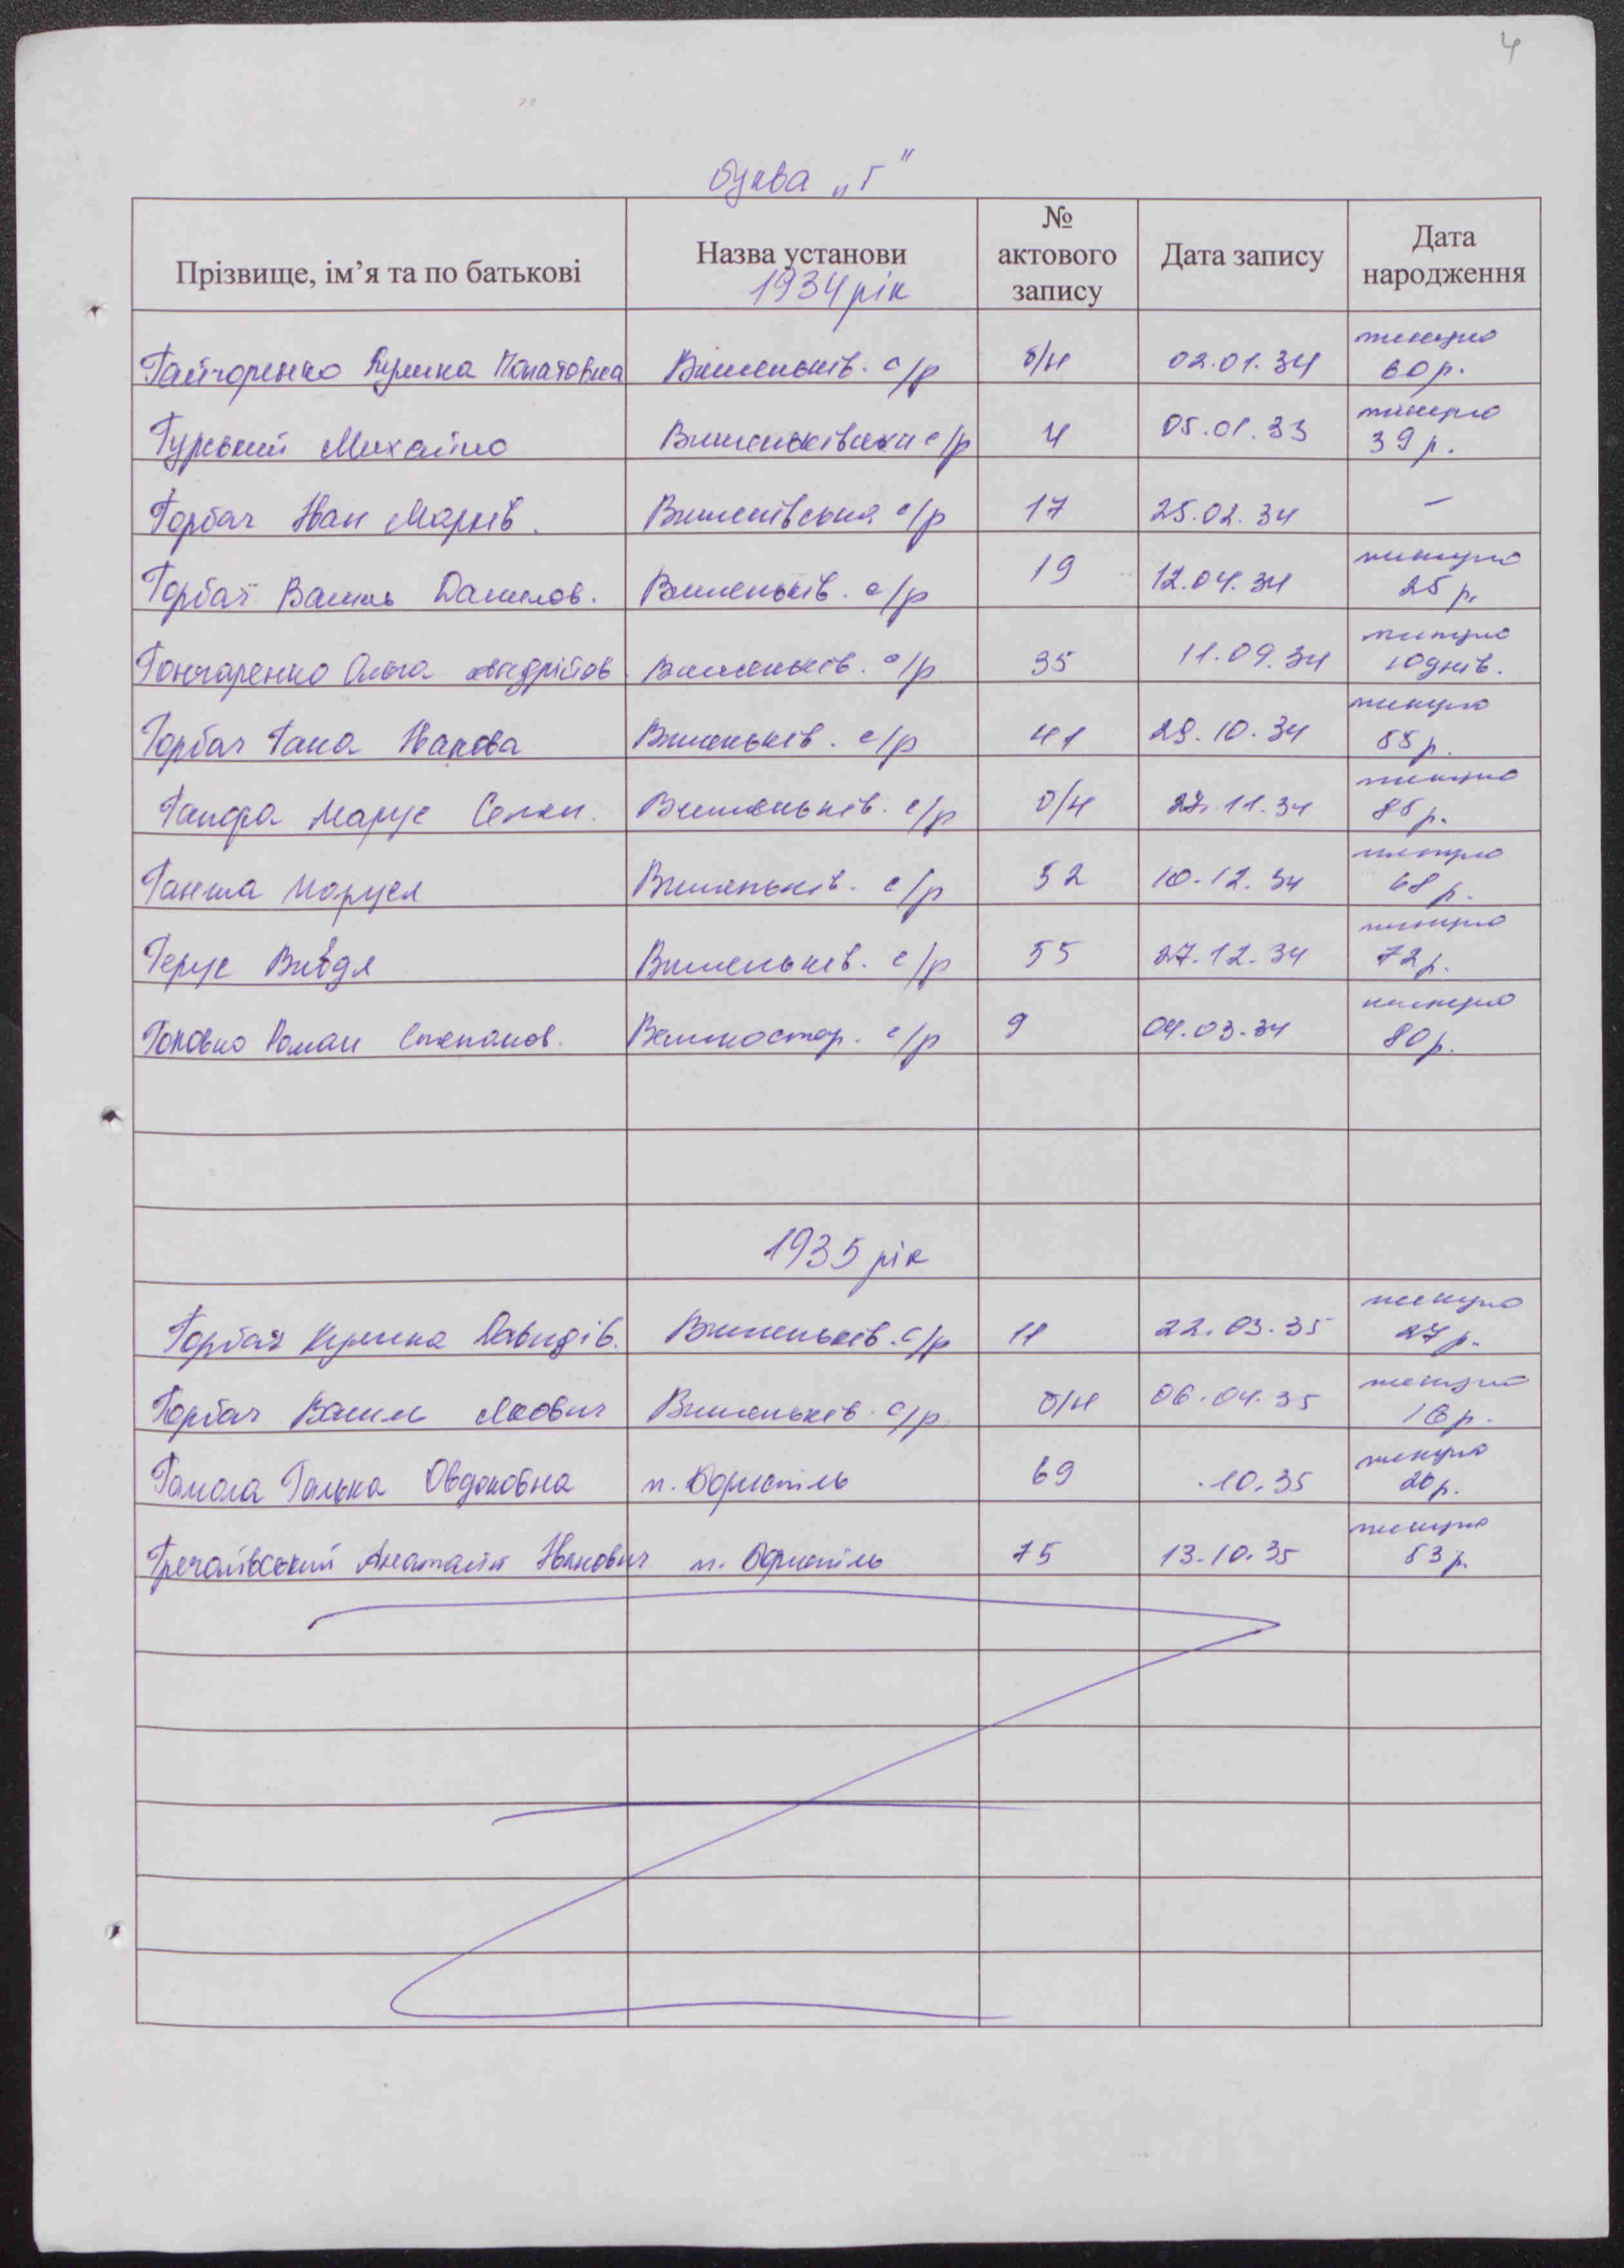 4
буква „Г"
Прізвище, ім'я та по батькові | Назва установи 1934 рік | № актового запису | Дата запису | Дата народження
Гайчоренко Кулина Понатовна | Вишеньків. с/р | б/н | 02.01.34 | минуло 60 р.
Гурський Михайло | Вишеньківська с/р | 4 | 05.01.33 | минуло 39 р.
Горбач Іван Марків. | Вишенівська с/р | 17 | 25.02.34 | –
Горбач Василь Данилов. | Вишеньків. с/р | 19 | 12.04.34 | минуло 25 р.
Гончаренко Ольга Андрійов | Вишеньків. с/р | 35 | 11.09.34 | минуло 10 днів.
Горбач Гана Іванова | Вишеньків. с/р | 41 | 29.10.34 | минуло 55 р.
Марус | Вишеньків. с/р | б/н | 27.11.34 | минуло 85 р.
Ганжа Маруся | Вишеньків. с/р | 52 | 10.12.34 | минуло 68 р.
Герус Вивдя | Вишеньків. с/р | 55 | 27.12.34 | минуло 72 р.
Головко Роман Степанов. | Великостар. с/р | 9 | 04.03.34 | минуло 80 р.
1935 рік
Горбач Кулина Давидів. | Вишеньків. с/р | 11 | 22.03.35 | минуло 27 р.
Горбач Васил | Вишеньків. с/р | б/н | 06.04.35 | минуло 16 р.
Галька Овдоковна | м. Бориспіль | 69 | .10.35 | минуло 20 р.
Іванович | м. Бориспіль | 75 | 13.10.35 | минуло 53 р.